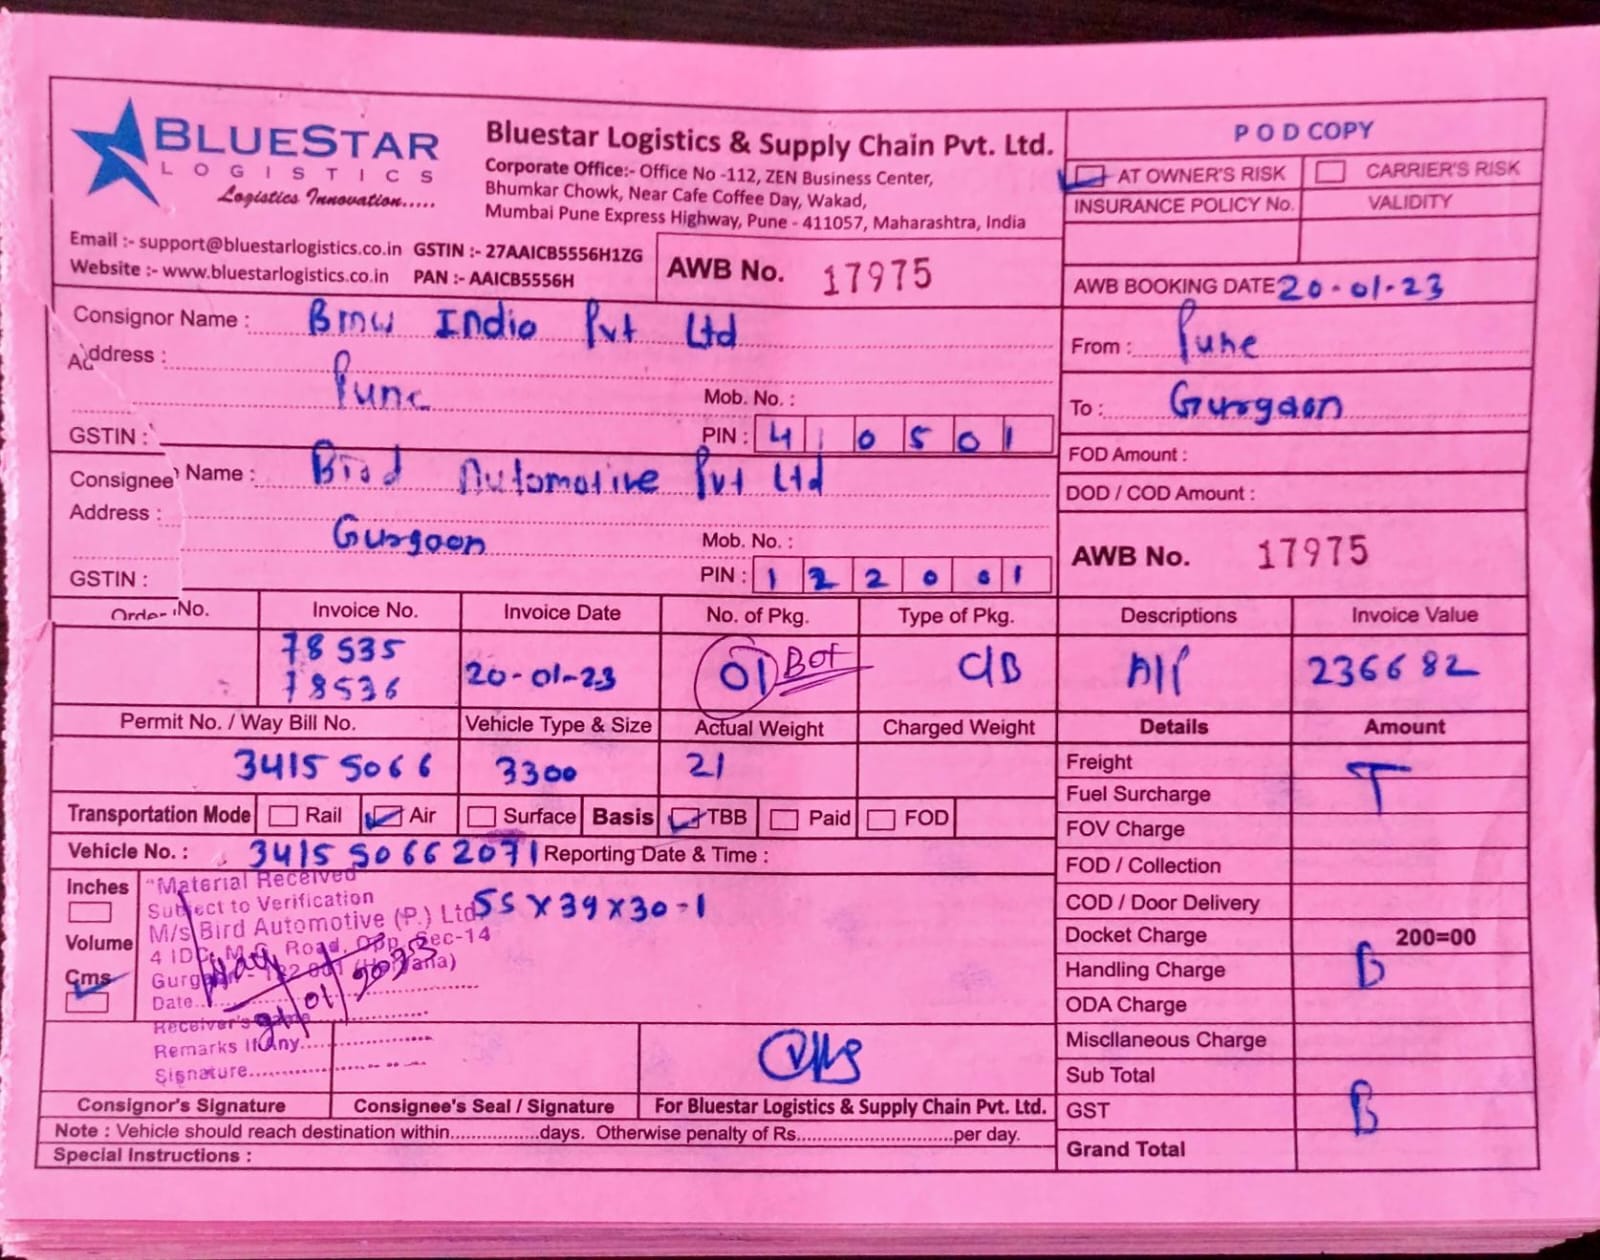 BLUESTAR
LOGISTICS
Logistics Innovation.....
Bluestar Logistics & Supply Chain Pvt. Ltd.
Corporate Office:- Office No -112, ZEN Business Center,
Bhumkar Chowk, Near Cafe Coffee Day, Wakad,
Mumbai Pune Express Highway, Pune - 411057, Maharashtra, India
Email :- support@bluestarlogistics.co.in GSTIN :- 27AAICB5556H1ZG
Website :- www.bluestarlogistics.co.in PAN :- AAICB5556H
AWB No. 17975
POD COPY
AT OWNER'S RISK CARRIER'S RISK
INSURANCE POLICY No. VALIDITY
AWB BOOKING DATE 20-01-23
Consignor Name : Bmw India Pvt Ltd
Address :
Pune
Mob. No. :
GSTIN :
PIN : 410501
From : Pune
To : Gurgaon
FOD Amount :
DOD / COD Amount :
Consignee Name : Bird Automotive Pvt Ltd
Address :
Gurgaon
Mob. No. :
GSTIN :
PIN : 122001
AWB No. 17975
Order No. Invoice No. Invoice Date No. of Pkg. Type of Pkg. Descriptions Invoice Value
78535
78536
20-01-23 01 Box C/B A/P 236682
Permit No. / Way Bill No. Vehicle Type & Size Actual Weight Charged Weight Details Amount
3415 5066 3300 21
Transportation Mode Rail Air Surface Basis TBB Paid FOD
Vehicle No. : 3415 5066 2071 Reporting Date & Time :
Inches
Volume
Cms
55 X 39 X 30 - 1
"Material Received
Subject to Verification
M/s Bird Automotive (P.) Ltd
4 IDC, M.G. Road, Opp. Sec-14
Gurgaon - 122 001 (Haryana)
Date..
Receiver's Name
Remarks If Any
Signature
21/01/2023
Freight T
Fuel Surcharge
FOV Charge
FOD / Collection
COD / Door Delivery
Docket Charge 200=00
Handling Charge B
ODA Charge
Miscllaneous Charge
Sub Total
GST B
Grand Total
Consignor's Signature Consignee's Seal / Signature For Bluestar Logistics & Supply Chain Pvt. Ltd.
Note : Vehicle should reach destination within.................days. Otherwise penalty of Rs.............................per day.
Special Instructions :